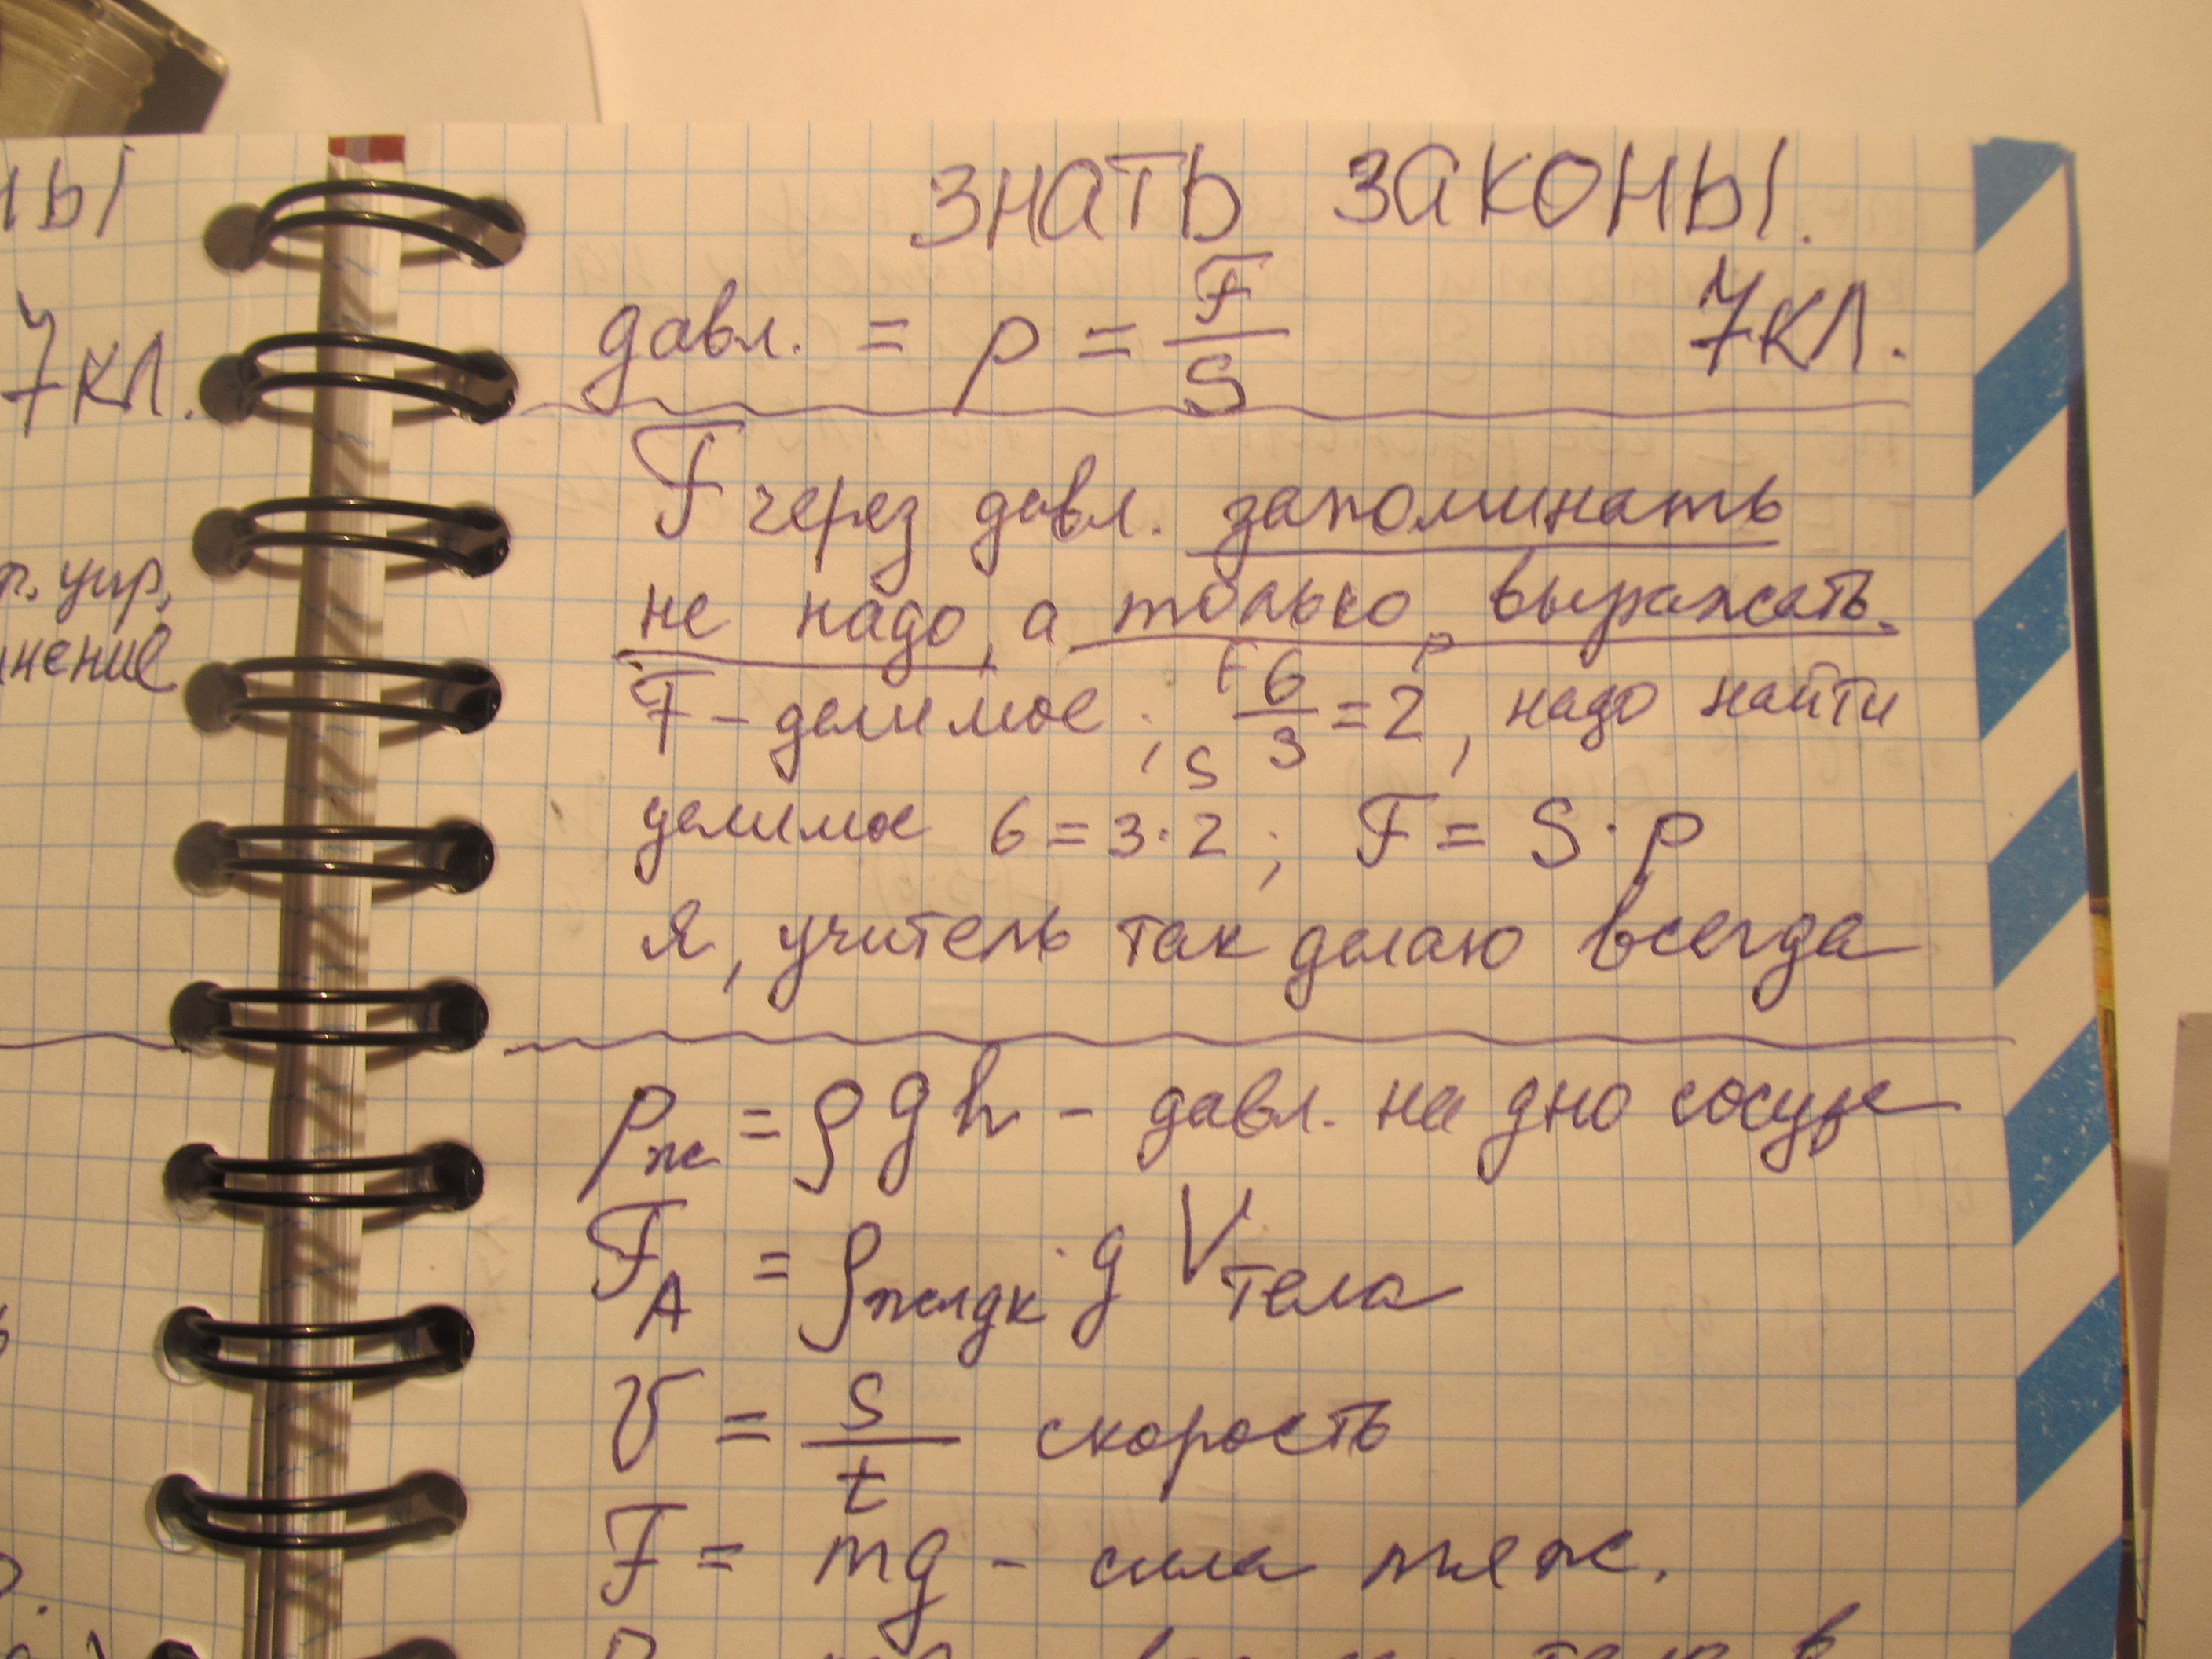 ны
7 кл.
упр,
нение
ЗНАТЬ ЗАКОНЫ.
давл. = p = F/S 7 кл.
F через давл. запоминать
не надо, а только выражать.
F – делимое; F 6/S 3 = 2 p, надо найти
делимое 6 = 3·2; F = S·p
Я, учитель так делаю всегда
pж = ρgh – давл. на дно сосуде
FA = ρжидк · g Vтела
v = s/t скорость
F = mg – сила тяж.